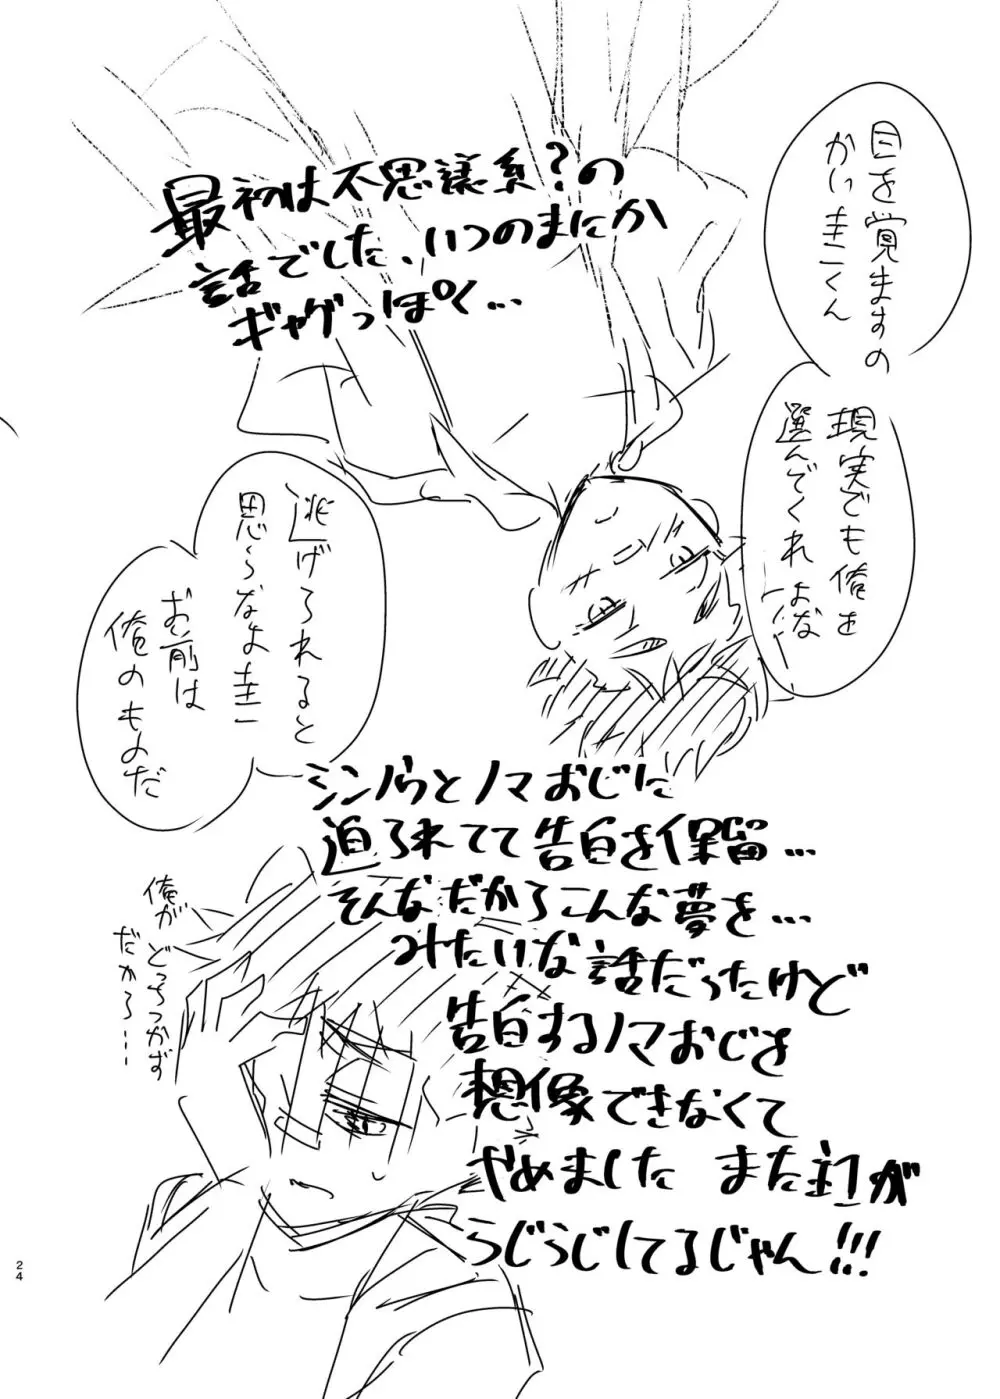 目を覚ますの
かい圭くん
現実でも俺を
選んでくれよな
最初は不思議系?の
話でした、いつのまにか
ギャグっぽく…
逃げられると
思うなよ圭
お前は
俺のものだ
シンノウとノマおじに
迫られてて告白を保留…
そんなだからこんな夢を…
みたいな話だったけど
告白するノマおじを
想像できなくて
やめました また圭が
うじうじしてるじゃん!!!
俺が
どっちつかず
だから…
24